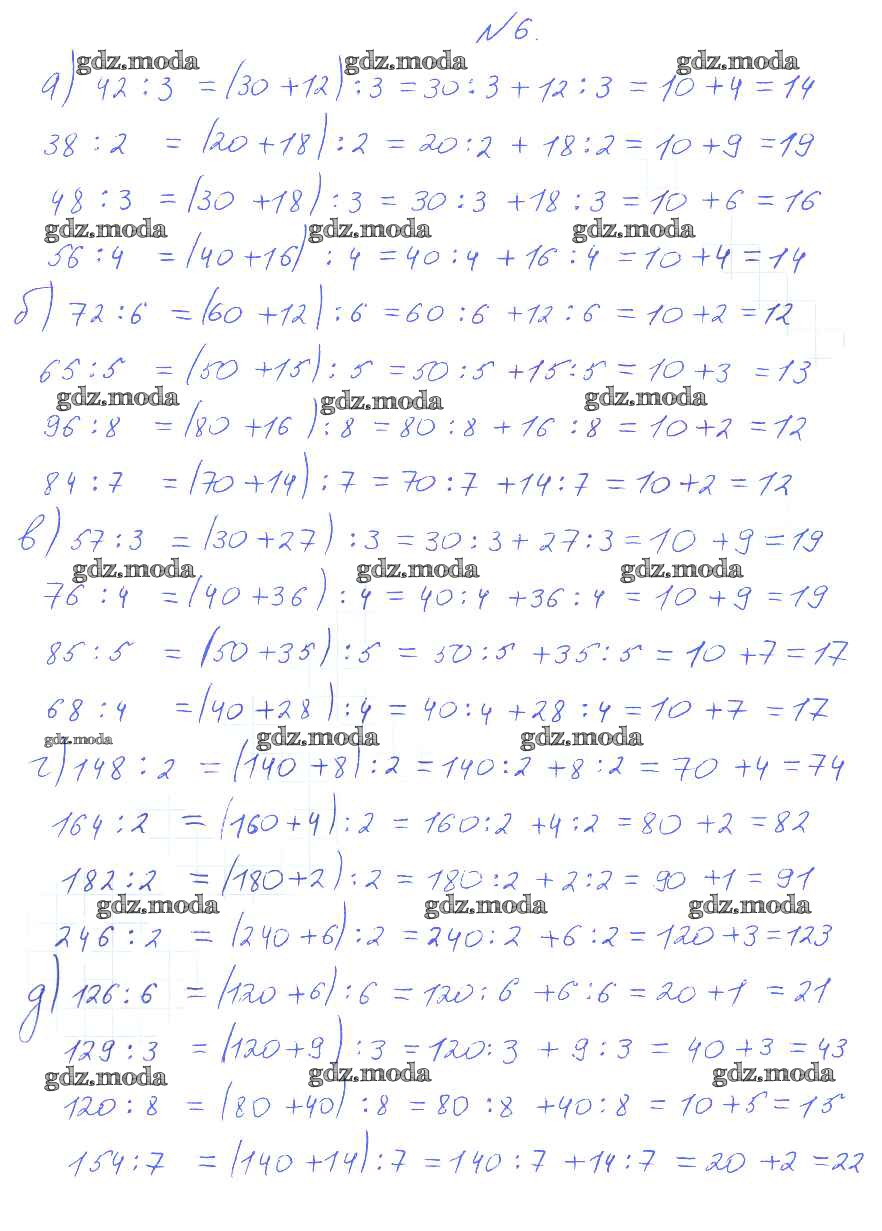 № 6.
gdz.moda gdz.moda gdz.moda
а) 42 : 3 = (30 + 12) : 3 = 30 : 3 + 12 : 3 = 10 + 4 = 14
38 : 2 = (20 + 18) : 2 = 20 : 2 + 18 : 2 = 10 + 9 = 19
48 : 3 = (30 + 18) : 3 = 30 : 3 + 18 : 3 = 10 + 6 = 16
gdz.moda gdz.moda gdz.moda
56 : 4 = (40 + 16) : 4 = 40 : 4 + 16 : 4 = 10 + 4 = 14
б) 72 : 6 = (60 + 12) : 6 = 60 : 6 + 12 : 6 = 10 + 2 = 12
65 : 5 = (50 + 15) : 5 = 50 : 5 + 15 : 5 = 10 + 3 = 13
gdz.moda gdz.moda gdz.moda
96 : 8 = (80 + 16) : 8 = 80 : 8 + 16 : 8 = 10 + 2 = 12
84 : 7 = (70 + 14) : 7 = 70 : 7 + 14 : 7 = 10 + 2 = 12
в) 57 : 3 = (30 + 27) : 3 = 30 : 3 + 27 : 3 = 10 + 9 = 19
gdz.moda gdz.moda gdz.moda
76 : 4 = (40 + 36) : 4 = 40 : 4 + 36 : 4 = 10 + 9 = 19
85 : 5 = (50 + 35) : 5 = 50 : 5 + 35 : 5 = 10 + 7 = 17
68 : 4 = (40 + 28) : 4 = 40 : 4 + 28 : 4 = 10 + 7 = 17
gdz.moda gdz.moda gdz.moda
г) 148 : 2 = (140 + 8) : 2 = 140 : 2 + 8 : 2 = 70 + 4 = 74
164 : 2 = (160 + 4) : 2 = 160 : 2 + 4 : 2 = 80 + 2 = 82
182 : 2 = (180 + 2) : 2 = 180 : 2 + 2 : 2 = 90 + 1 = 91
gdz.moda gdz.moda gdz.moda
246 : 2 = (240 + 6) : 2 = 240 : 2 + 6 : 2 = 120 + 3 = 123
д) 126 : 6 = (120 + 6) : 6 = 120 : 6 + 6 : 6 = 20 + 1 = 21
129 : 3 = (120 + 9) : 3 = 120 : 3 + 9 : 3 = 40 + 3 = 43
gdz.moda gdz.moda gdz.moda
120 : 8 = (80 + 40) : 8 = 80 : 8 + 40 : 8 = 10 + 5 = 15
154 : 7 = (140 + 14) : 7 = 140 : 7 + 14 : 7 = 20 + 2 = 22